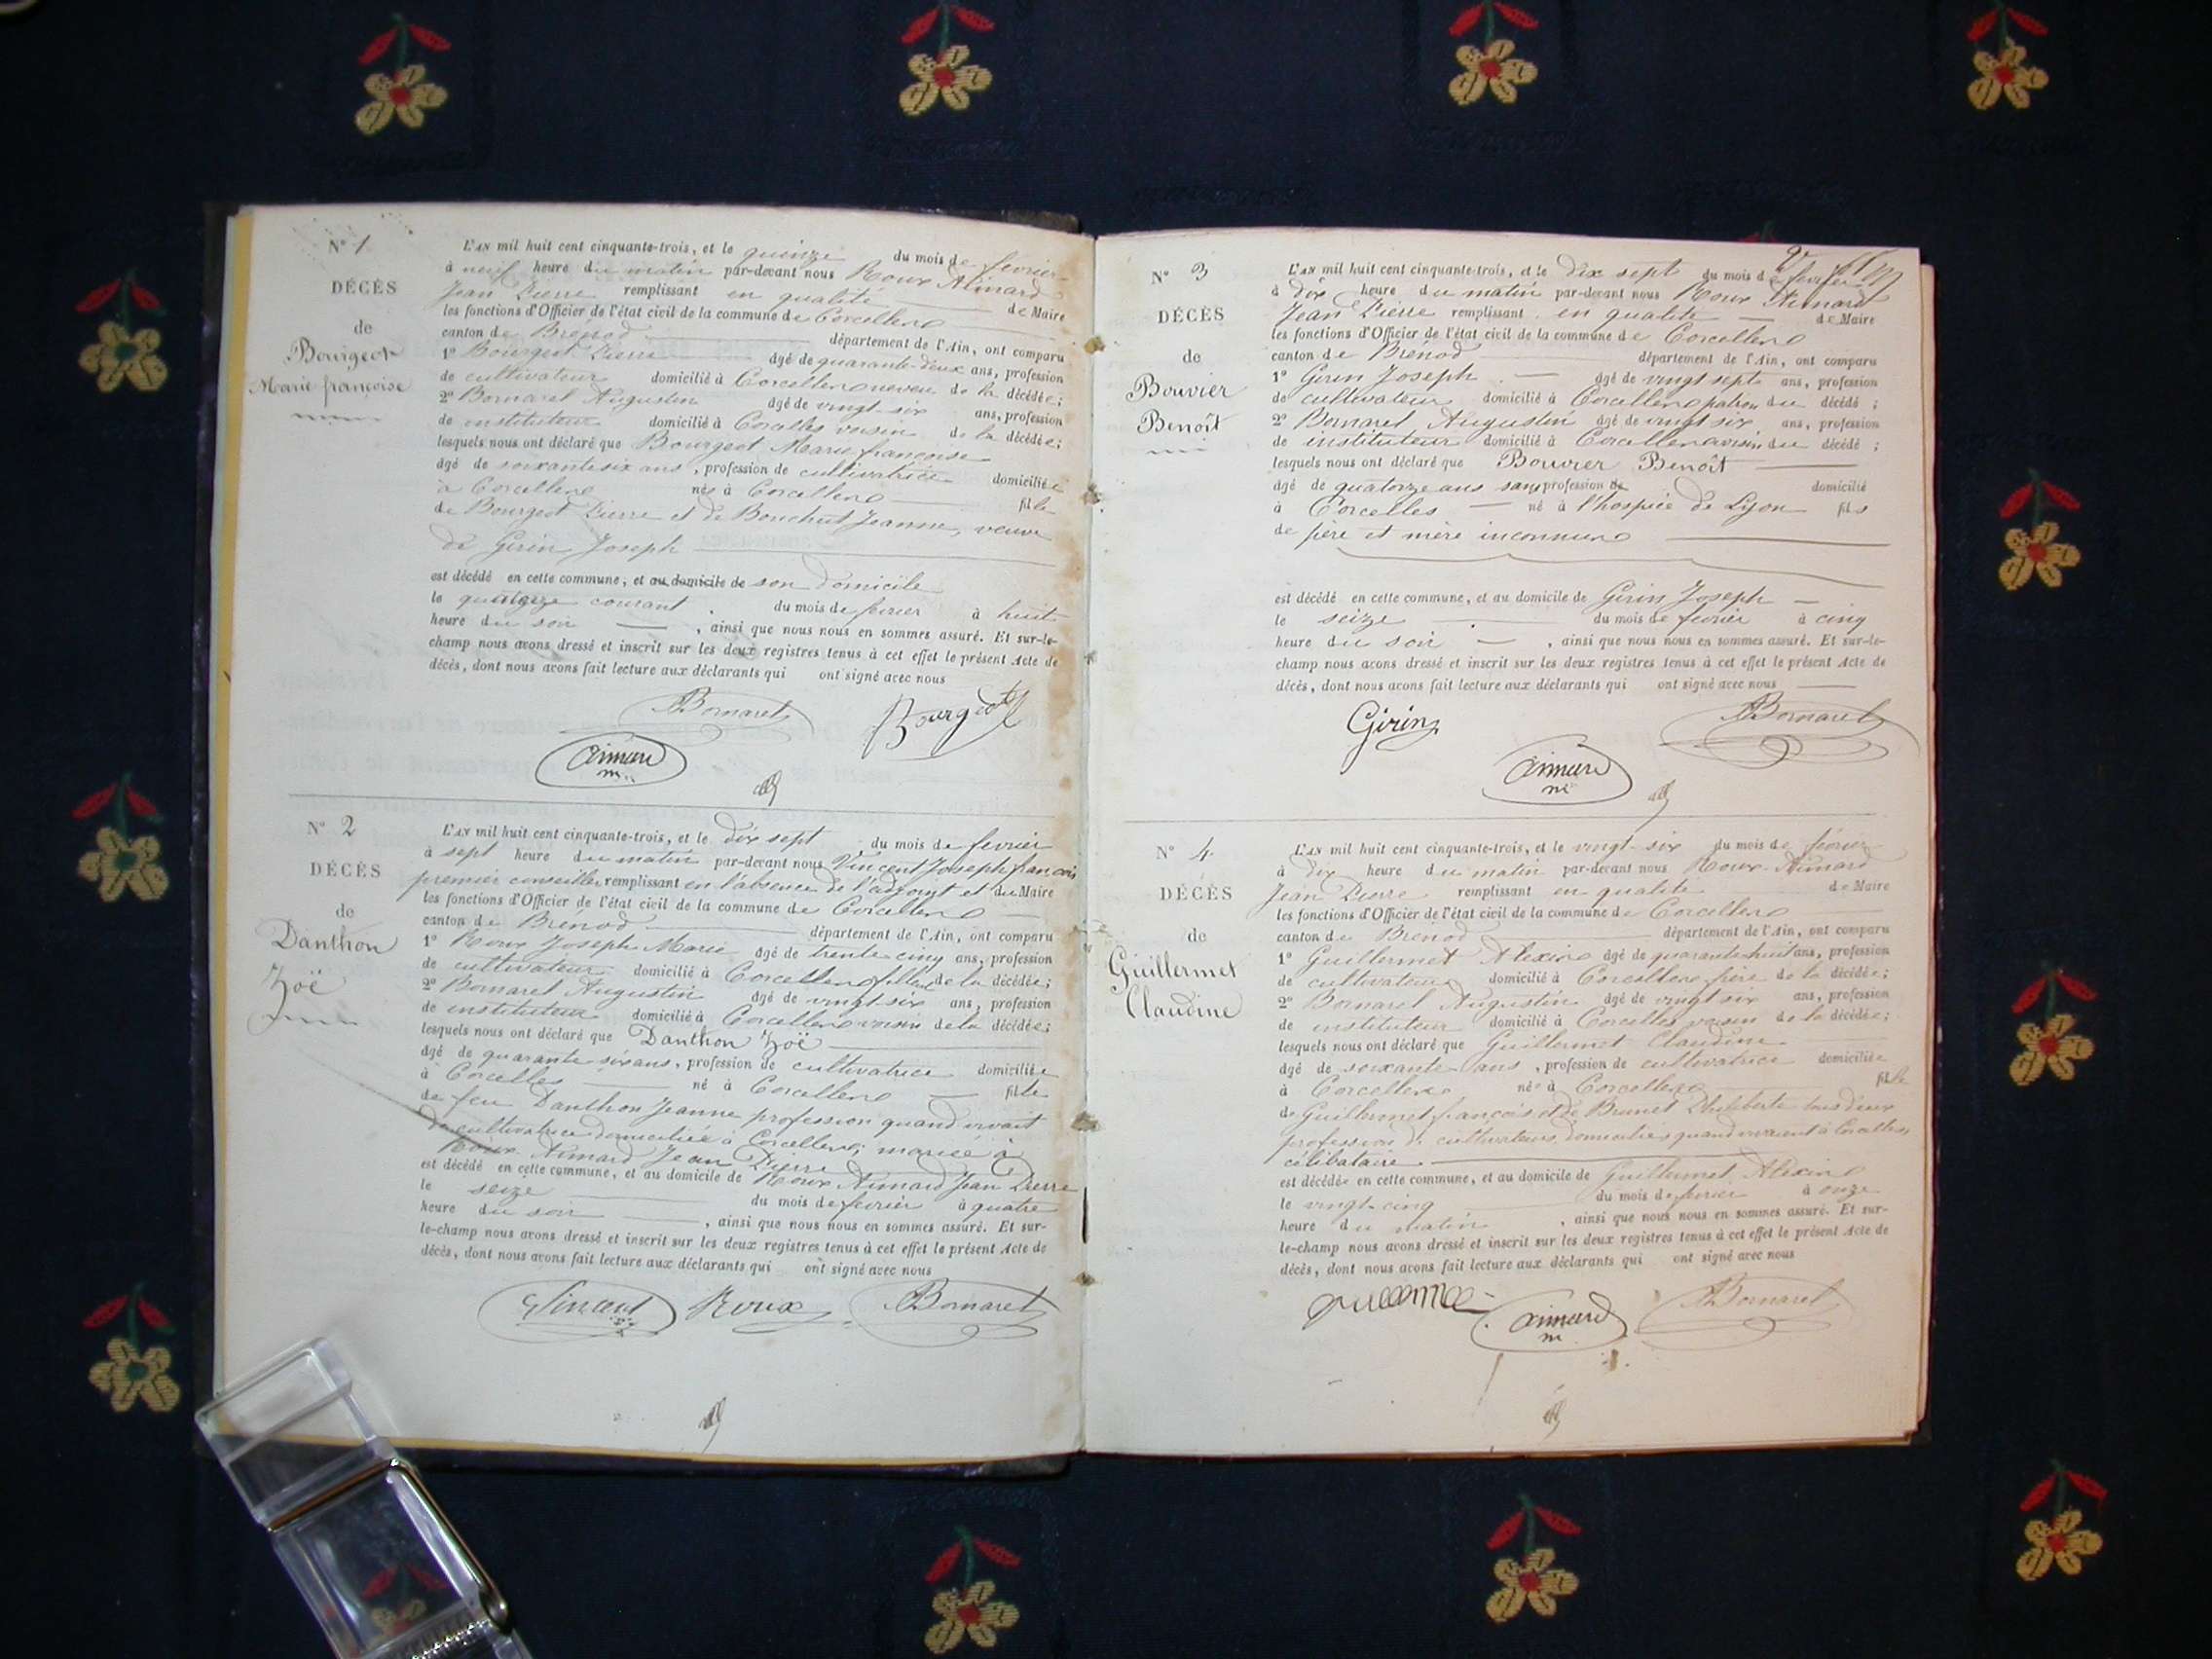 N° 1
DÉCÈS
de
Bourgeot
Marie françoise
L'AN mil huit cent cinquante-trois, et le quinze du mois de fevrier
à neuf heure du matin par-devant nous Roux Aimard
Jean Pierre remplissant en qualité de Maire
les fonctions d'Officier de l'état civil de la commune de Corcelles
canton de Brénod département de l'Ain, ont comparu
1° Bourgeot Pierre âgé de quarante-deux ans, profession
de cultivateur domicilié à Corcelles neveu de la décédée;
2° Bornarel Augustin âgé de vingt six ans, profession
de instituteur domicilié à Corcelles voisin de la décédée;
lesquels nous ont déclaré que Bourgeot Marie françoise
âgé de soixante six ans, profession de cultivatrice domiciliée
à Corcelles née à Corcelles fille
de Bourgeot Pierre et de Bouchut Jeanne, veuve
de Girin Joseph
est décédé en cette commune, et au domicile de son domicile
le quatorze courant du mois de fevrier à huit
heure du soir, ainsi que nous nous en sommes assuré. Et sur-le-
champ nous avons dressé et inscrit sur les deux registres tenus à cet effet le présent Acte de
décès, dont nous avons fait lecture aux déclarants qui ont signé avec nous
Bornarel Bourgeot
aimard
m
N° 2
DÉCÈS
de
Danthon
Zoë
L'AN mil huit cent cinquante-trois, et le dix sept du mois de fevrier
à sept heure du matin par-devant nous Vincent Joseph françois
premier conseiller remplissant en l'absence de l'adjoint et du Maire
les fonctions d'Officier de l'état civil de la commune de Corcelles
canton de Brénod département de l'Ain, ont comparu
1° Roux Joseph Marie âgé de trente cinq ans, profession
de cultivateur domicilié à Corcelles de la décédée;
2° Bornarel Augustin âgé de vingt-six ans, profession
de instituteur domicilié à Corcelles voisin de la décédée;
lesquels nous ont déclaré que Danthon Zoë
âgé de quarante-six ans, profession de cultivatrice domiciliée
à Corcelles né à Corcelles fille
de feu Danthon Jeanne profession quand vivait
de cultivatrice domiciliée à Corcelles; mariée à
Roux Aimard Jean Pierre
est décédé en cette commune, et au domicile de Roux Aimard Jean Pierre
le seize du mois de fevrier à quatre
heure du soir, ainsi que nous nous en sommes assuré. Et sur-
le-champ nous avons dressé et inscrit sur les deux registres tenus à cet effet le présent Acte de
décès, dont nous avons fait lecture aux déclarants qui ont signé avec nous
Vincent Roux Bornarel
N° 3
DÉCÈS
de
Bouvier
Benoît
L'AN mil huit cent cinquante-trois, et le dix sept du mois de fevrier
à dix heure du matin par-devant nous Roux Aimard
Jean Pierre remplissant en qualité de Maire
les fonctions d'Officier de l'état civil de la commune de Corcelles
canton de Brénod département de l'Ain, ont comparu
1° Girin Joseph âgé de vingt sept ans, profession
de cultivateur domicilié à Corcelles patron du décédé;
2° Bornarel Augustin âgé de vingt six ans, profession
de instituteur domicilié à Corcelles voisin du décédé;
lesquels nous ont déclaré que Bouvier Benoît
âgé de quatorze ans sans profession de domicilié
à Corcelles né à l'hospice de Lyon fils
de père et mère inconnus
est décédé en cette commune, et au domicile de Girin Joseph
le seize du mois de fevrier à cinq
heure du soir, ainsi que nous nous en sommes assuré. Et sur-le-
champ nous avons dressé et inscrit sur les deux registres tenus à cet effet le présent Acte de
décès, dont nous avons fait lecture aux déclarants qui ont signé avec nous
Girin Bornarel
aimard
m
N° 4
DÉCÈS
de
Guillermet
Claudine
L'AN mil huit cent cinquante-trois, et le vingt-six du mois de février
à dix heure du matin par-devant nous Roux Aimard
Jean Pierre remplissant en qualité de Maire
les fonctions d'Officier de l'état civil de la commune de Corcelles
canton de Brénod département de l'Ain, ont comparu
1° Guillermet Alexis âgé de quarante-huit ans, profession
de cultivateur domicilié à Corcelles frère de la décédée;
2° Bornarel Augustin âgé de vingt six ans, profession
de instituteur domicilié à Corcelles voisin de la décédée;
lesquels nous ont déclaré que Guillermet Claudine
âgé de soixante ans, profession de cultivatrice domiciliée
à Corcelles née à Corcelles fille
de Guillermet françois et de Brunet Philiberte tous deux
profession de cultivateurs domiciliés quand vivaient à Corcelles
célibataire
est décédée en cette commune, et au domicile de Guillermet Alexis
le vingt-cinq du mois de fevrier à onze
heure du matin, ainsi que nous nous en sommes assuré. Et sur-
le-champ nous avons dressé et inscrit sur les deux registres tenus à cet effet le présent Acte de
décès, dont nous avons fait lecture aux déclarants qui ont signé avec nous
aimard Bornarel
m